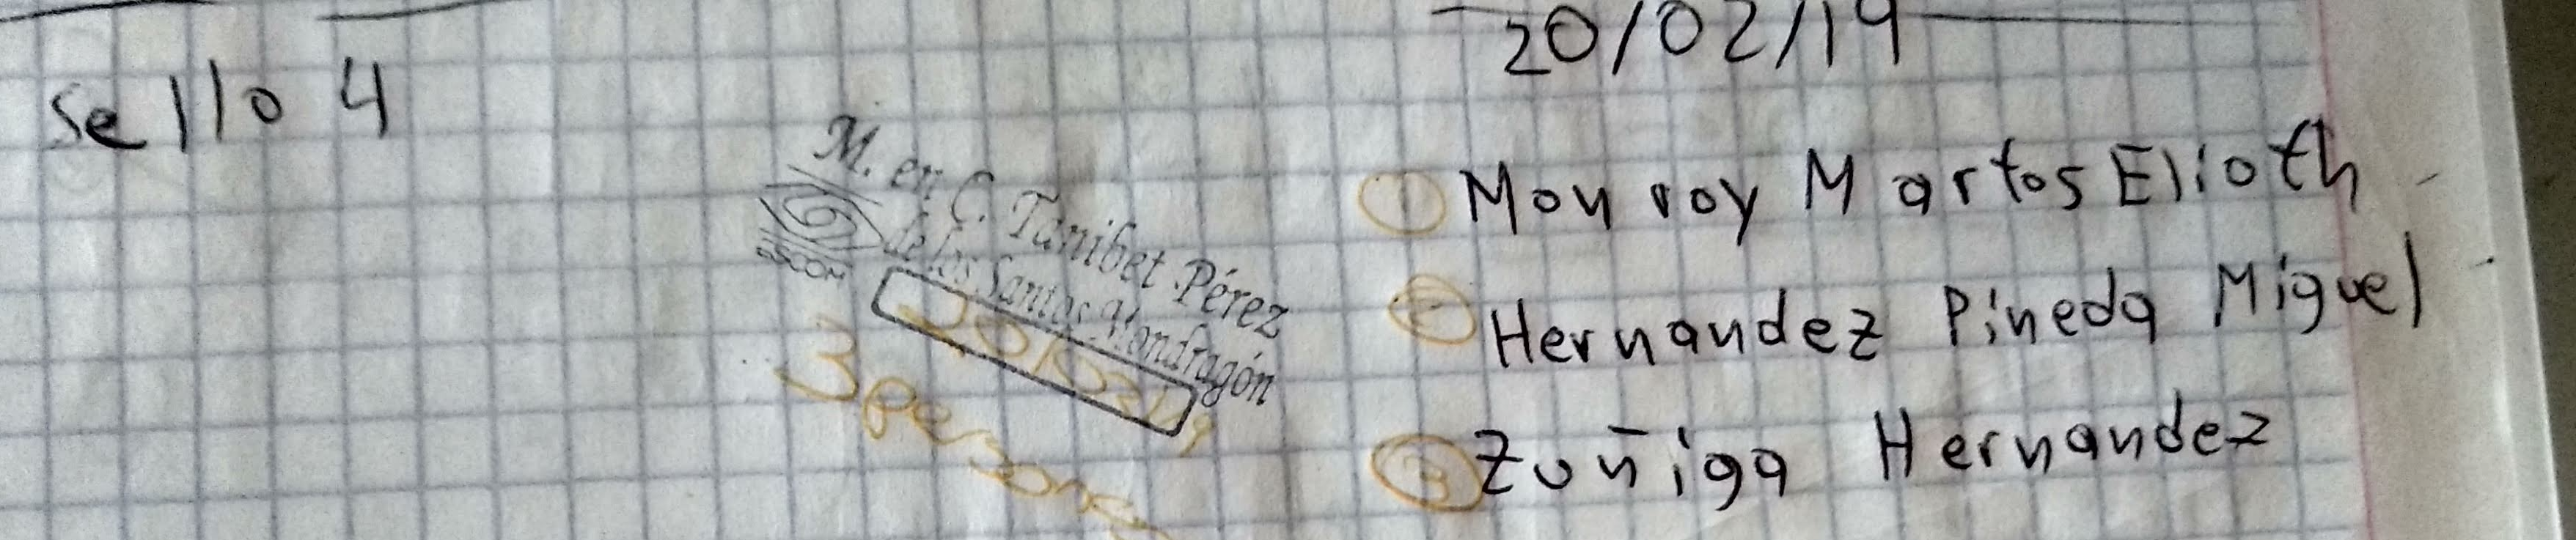 20/02/19
Sello 4
M. en C. Tanibet Pérez
de los Santos Mondragón
ESCOM
20/02/19
3 personas
1 Monroy Martos Elioth
2 Hernandez Pineda Miguel
3 Zuñiga Hernandez